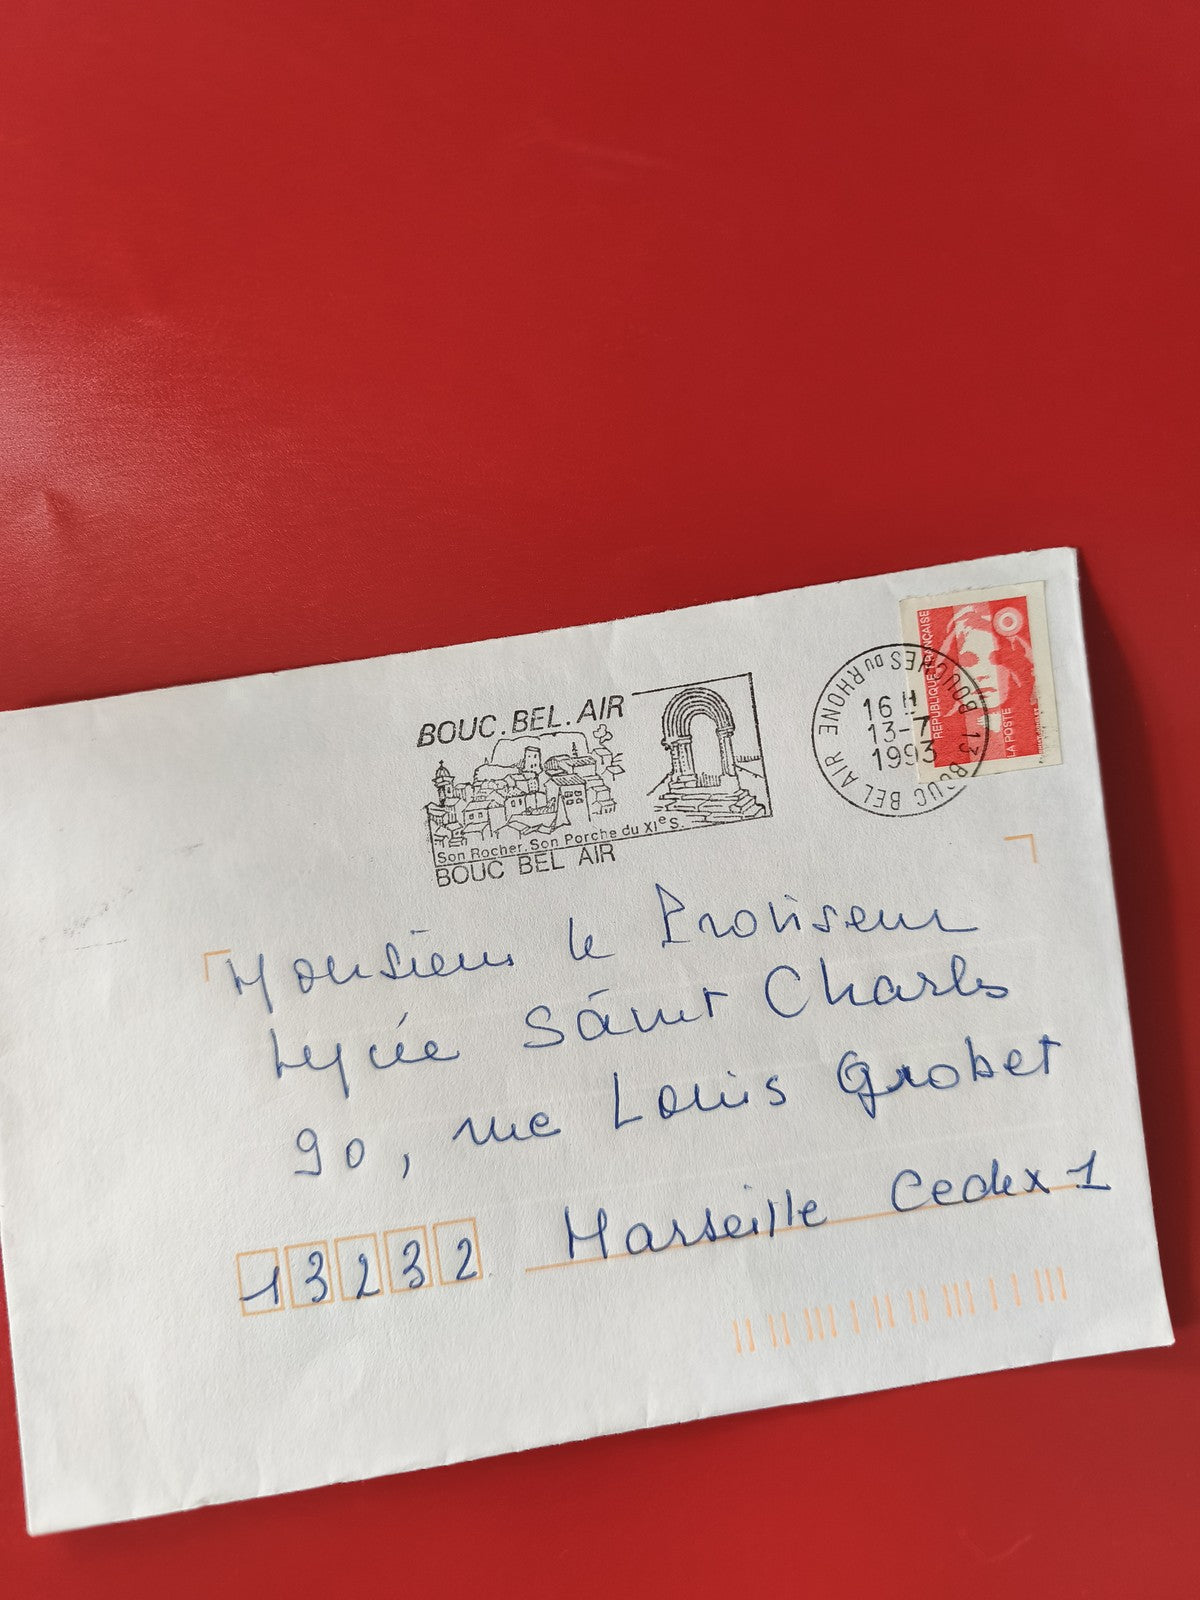 BOUC.BEL.AIR
Son Rocher. Son Porche du XIe S.
BOUC BEL AIR
13 BOUC BEL AIR
BOUCHES DU RHONE
16 H
13-7
1993
REPUBLIQUE FRANÇAISE
LA POSTE
Monsieur le Proviseur
Lycée Saint Charles
90, rue Louis Grobet
13232 Marseille Cedex 1